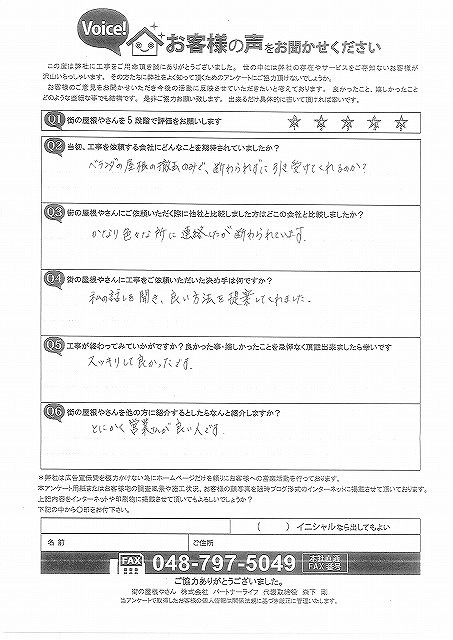 Voice!
お客様の声をお聞かせください
この度は弊社に工事をご用命頂き誠にありがとうございました。 世の中には弊社の存在やサービスをご存知ないお客様が
沢山いらっしゃいます。 その方たちに弊社をよく知って頂くためのアンケートにご協力頂けないでしょうか。
お客様のご意見をお聞かせいただき今後の活動に反映させていただきたいと考えております。 良かったこと、嬉しかったこと
どのような些細な事でも結構です。 是非ご協力お願い致します。 出来るだけ具体的に書いて頂ければ幸いです。
Q1 街の屋根やさんを5段階で評価をお願いします ☆ ☆ ☆ ☆ ☆
Q2 当初、工事を依頼する会社にどんなことを期待されていましたか?
ベランダの屋根の撤去のみで、断わられずに引き受けてくれるのか?
Q3 街の屋根やさんにご依頼いただく際に他社と比較しました方はどこの会社と比較しましたか?
かなり色々な所に連絡したが断わられています。
Q4 街の屋根やさんに工事をご依頼いただいた決め手は何ですか?
私の話しを聞き、良い方法を提案してくれました。
Q5 工事が終わってみていかがですか?良かった事・嬉しかったことを忌憚なく頂戴出来ましたら幸いです
スッキリして良かったです。
Q6 街の屋根やさんを他の方に紹介するとしたらなんと紹介しますか?
とにかく営業さんが良い人です。
*弊社は広告宣伝費を極力かけない為にホームページだけを頼りにお客様への営業活動を行っております。
本アンケート用紙またはお客様宅の調査風景や施工状況、お客様の顔写真を随時ブログ形式のインターネットに掲載させて頂いております。
上記内容をインターネットや印刷物に掲載させて頂いてもよろしいでしょうか?
下記の中から○印をお付下さい。
( ) イニシャルなら出してもよい
名前 ご住所
FAX 048-797-5049 本社直通 FAX番号
ご協力ありがとうございました。
街の屋根やさん 株式会社 パートナーライフ 代表取締役 森下 剛
当アンケートで取得したお客様の個人情報は関係法規に基づき厳正に管理いたします。